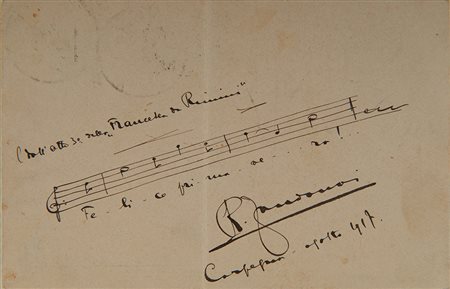 (dall'atto 3º della „Francesca da Rimini"
Fe - li - ce pri - ma - ve - ra! ...
R. Zandonai
Carpegna - agosto 1917.